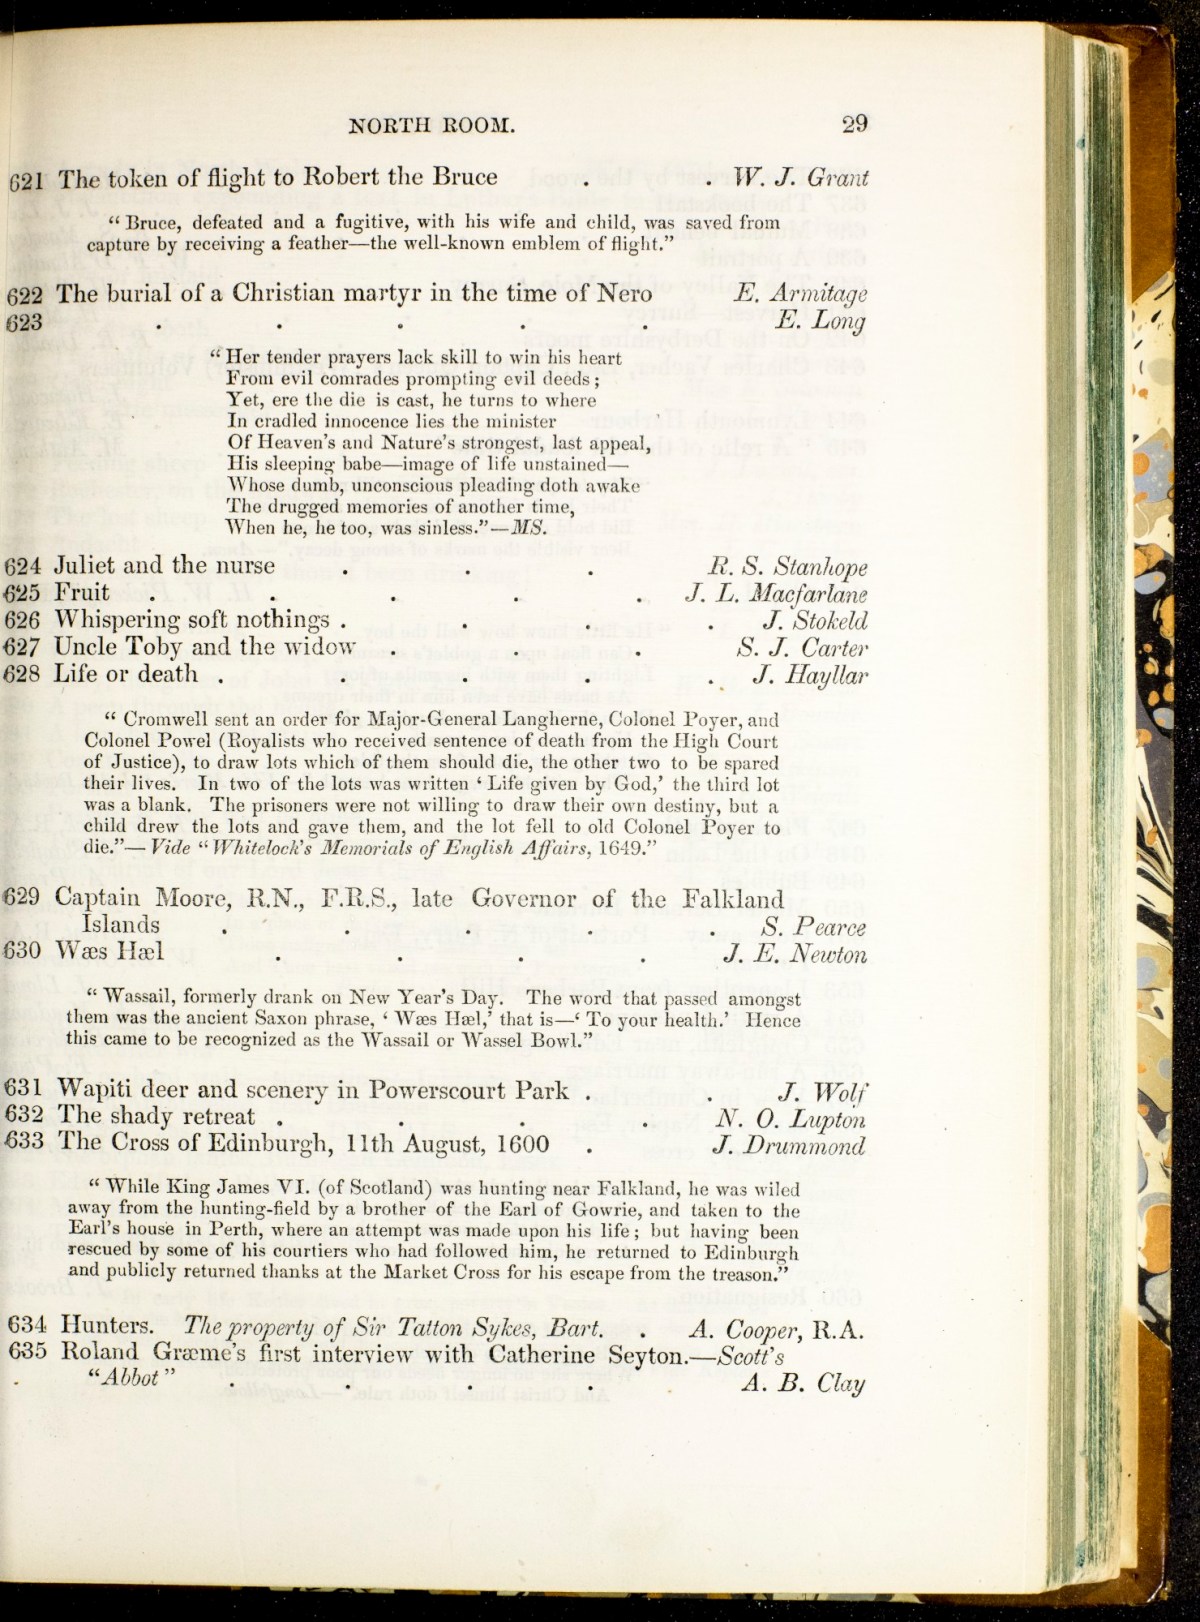 NORTH ROOM. 29
621 The token of flight to Robert the Bruce . . W. J. Grant
“ Bruce, defeated and a fugitive, with his wife and child, was saved from
capture by receiving a feather—the well-known emblem of flight.”
622 The burial of a Christian martyr in the time of Nero E. Armitage
623 . . . . . E. Long
“ Her tender prayers lack skill to win his heart
From evil comrades prompting evil deeds ;
Yet, ere the die is cast, he turns to where
In cradled innocence lies the minister
Of Heaven’s and Nature’s strongest, last appeal,
His sleeping babe—image of life unstained—
Whose dumb, unconscious pleading doth awake
The drugged memories of another time,
When he, he too, was sinless.”—MS.
624 Juliet and the nurse . . . R. S. Stanhope
625 Fruit . . . . . J. L. Macfarlane
626 Whispering soft nothings . . . . J. Stokeld
627 Uncle Toby and the widow . . . S. J. Carter
628 Life or death . . . . . J. Hayllar
“ Cromwell sent an order for Major-General Langherne, Colonel Poyer, and
Colonel Powel (Royalists who received sentence of death from the High Court
of Justice), to draw lots which of them should die, the other two to be spared
their lives. In two of the lots was written ‘ Life given by God,’ the third lot
was a blank. The prisoners were not willing to draw their own destiny, but a
child drew the lots and gave them, and the lot fell to old Colonel Poyer to
die.”— Vide “ Whitelock’s Memorials of English Affairs, 1649.”
629 Captain Moore, R.N., F.R.S., late Governor of the Falkland
Islands . . . . . S. Pearce
630 Wæs Hæl . . . . J. E. Newton
“ Wassail, formerly drank on New Year’s Day. The word that passed amongst
them was the ancient Saxon phrase, ‘ Wæs Hæl,’ that is—‘ To your health.’ Hence
this came to be recognized as the Wassail or Wassel Bowl.”
631 Wapiti deer and scenery in Powerscourt Park . . J. Wolf
632 The shady retreat . . . . N. O. Lupton
633 The Cross of Edinburgh, 11th August, 1600 . J. Drummond
“ While King James VI. (of Scotland) was hunting near Falkland, he was wiled
away from the hunting-field by a brother of the Earl of Gowrie, and taken to the
Earl’s house in Perth, where an attempt was made upon his life ; but having been
rescued by some of his courtiers who had followed him, he returned to Edinburgh
and publicly returned thanks at the Market Cross for his escape from the treason.”
634 Hunters. The property of Sir Tatton Sykes, Bart. . A. Cooper, R.A.
635 Roland Græme’s first interview with Catherine Seyton.—Scott’s
“Abbot” . . . . A. B. Clay